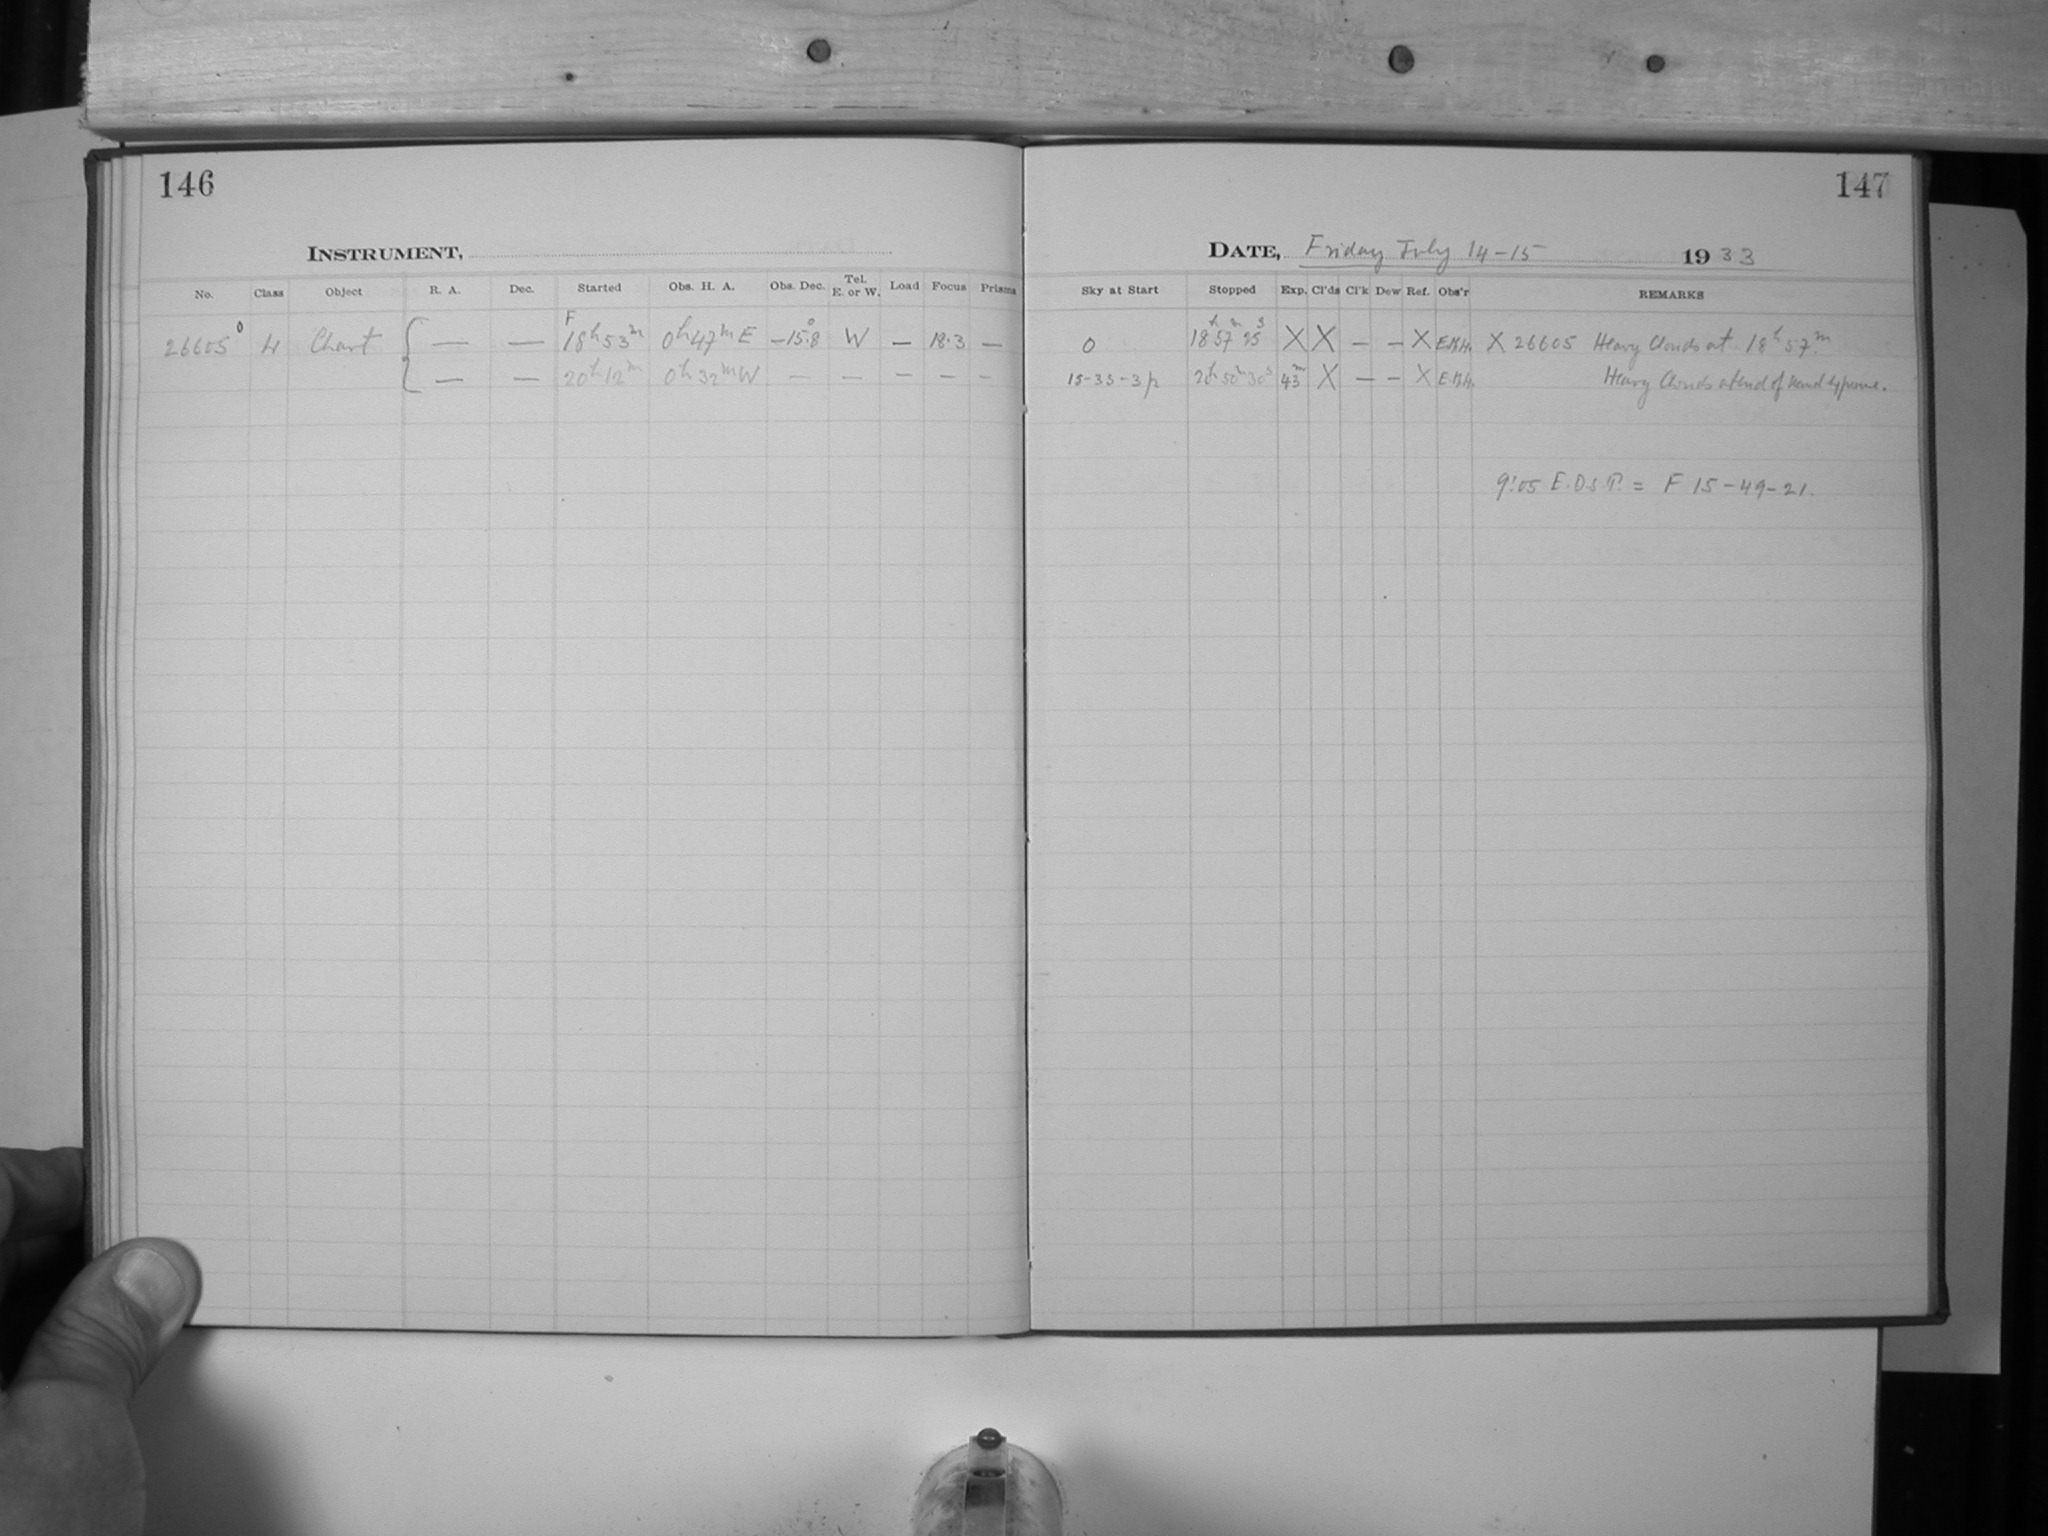 146
INSTRUMENT,
No. Class Object R. A. Dec. Started Obs. H. A. Obs. Dec. Tel. E. or W. Load Focus Prisms
F
26605 0 Chart { — — 18h 53m 0h 47m E −15°.8 W — 18.3 —
— — 20h 12m 0h 32m W — — — — —
147
DATE, Friday July 14-15 1933
Sky at Start Stopped Exp. Cl'ds Cl'k Dew Ref. Obs'r REMARKS
0 18h 57m X X — — X X 26605 Heavy Clouds at 18h 57m.
20h 50m 30s 43m X — — X Heavy Clouds at end of
9:05 E.D.S.T. = F 15-49-21.